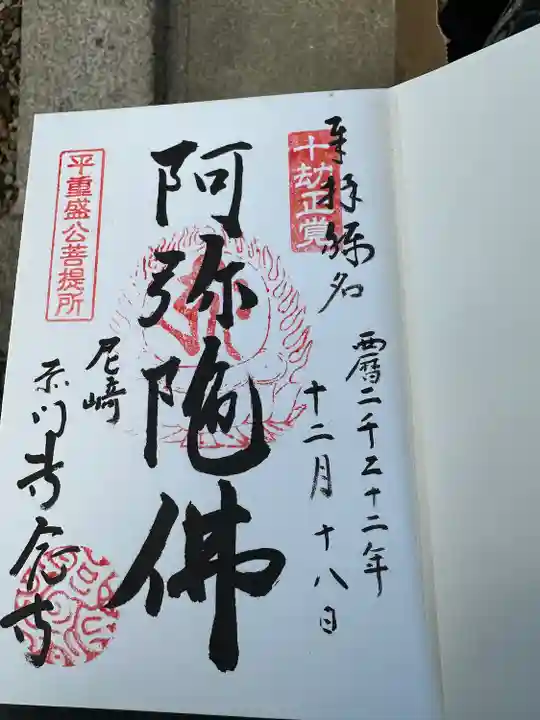 奉拝稱名
十劫正覚
西暦二千二十二年
十二月十八日
阿弥陀佛
平重盛公菩提所
尼崎
専念寺